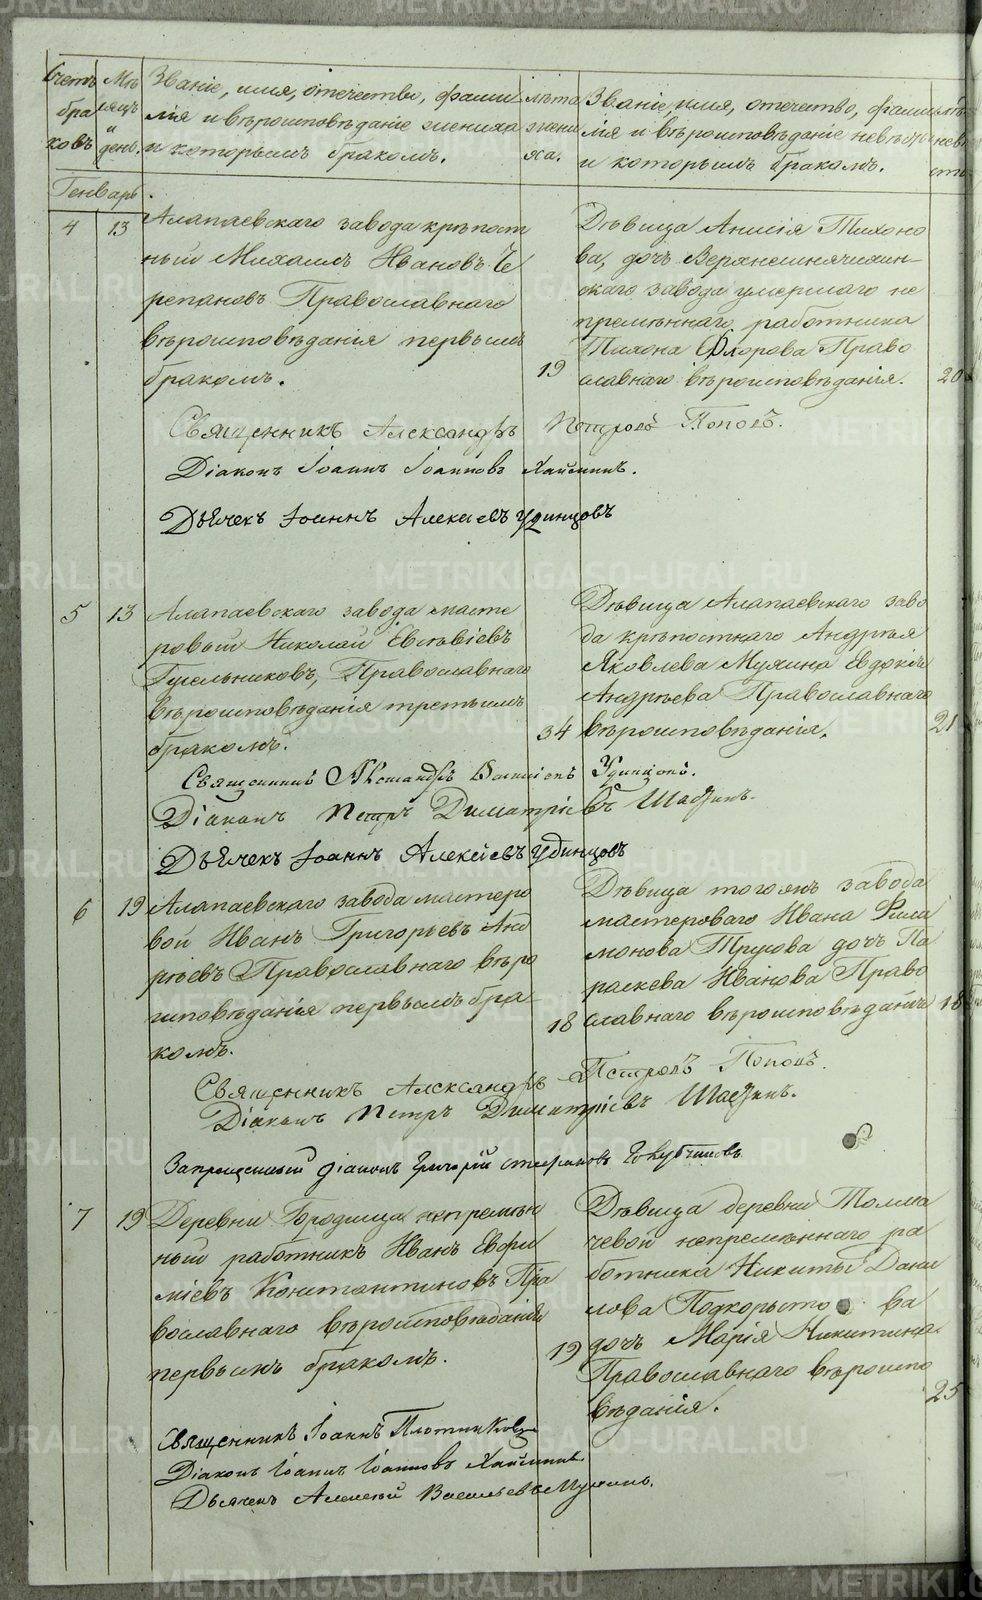 Счетъ браковъ
Мѣсяцъ и день.
Званіе, имя, отечество, фами
лія и вѣроисповѣданіе жениха
и которымъ бракомъ.
лѣта
жени
ха.
Званіе, имя, отечество, фами
лія и вѣроисповѣданіе невѣсты
и которымъ бракомъ.
Генварь.
4
13
Алапаевскаго завода крѣпост
ный Михаилъ Ивановъ Че
репановъ Православнаго
вѣроисповѣданія первымъ
бракомъ.
19
Дѣвица Анисія Тихоно
ва, дочь Верхнесинячихин-
скаго завода умершаго не
премѣннаго работника
Тихона Флорова Право
славнаго вѣроисповѣданія.
20
Священникъ Александръ Петровъ Поповъ.
Діаконъ Іоаннъ Іоанновъ Хаймминъ.
Дьячекъ Іоаннъ Алексіевъ Удинцовъ
5
13
Алапаевскаго завода масте
ровый Николай Евсѣвіевъ
Гусельниковъ, Православнаго
вѣроисповѣданія третьимъ
бракомъ.
34
Дѣвица Алапаевскаго заво
да крѣпостнаго Андрѣя
Яковлева Мухина Евдокія
Андрѣева Православнаго
вѣроисповѣданія.
21
Священникъ Александръ Удинцовъ.
Діаконъ Петръ Димитріевъ
Дьячекъ Іоаннъ Алексіевъ Удинцовъ
6
19
Алапаевскаго завода мастеро
вой Иванъ Григорьевъ Анд
рѣевъ Православнаго вѣро
исповѣданія первымъ бра
комъ.
18
Дѣвица того жъ завода
мастероваго Ивана Фила
монова Трусова дочь Па
раскева Иванова Право
славнаго вѣроисповѣданія
18
Священникъ Александръ Петровъ Поповъ.
Діаконъ Петръ Димитріевъ
Запрещенный діаконъ Григорій Стефановъ
7
19
Деревни Городища непремѣн
ный работникъ Иванъ Евфи
міевъ Константиновъ Пра
вославнаго вѣроисповѣданія
первымъ бракомъ.
19
Дѣвица деревни Толма
чевой непремѣннаго ра
ботника Никиты Дани
лова Подкорытова
дочь Марія Никитина
Православнаго вѣроиспо
вѣданія.
25
Священникъ Іоаннъ Плотниковъ
Діаконъ Іоаннъ Іоанновъ
Дьячекъ Алексѣй Васильевъ Мухинъ.
METRIKI.GASO-URAL.RU